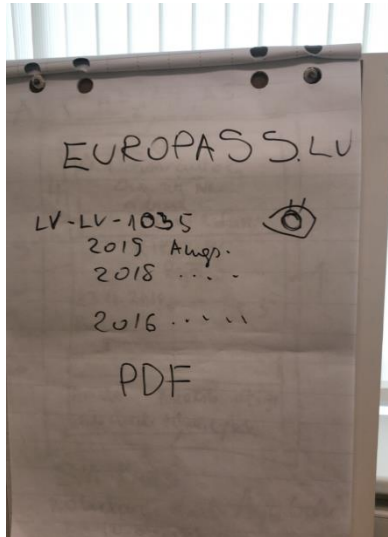 EUROPASS.LV
LV-LV-1035
2019 Augs.
2018 .....
2016 .....
PDF